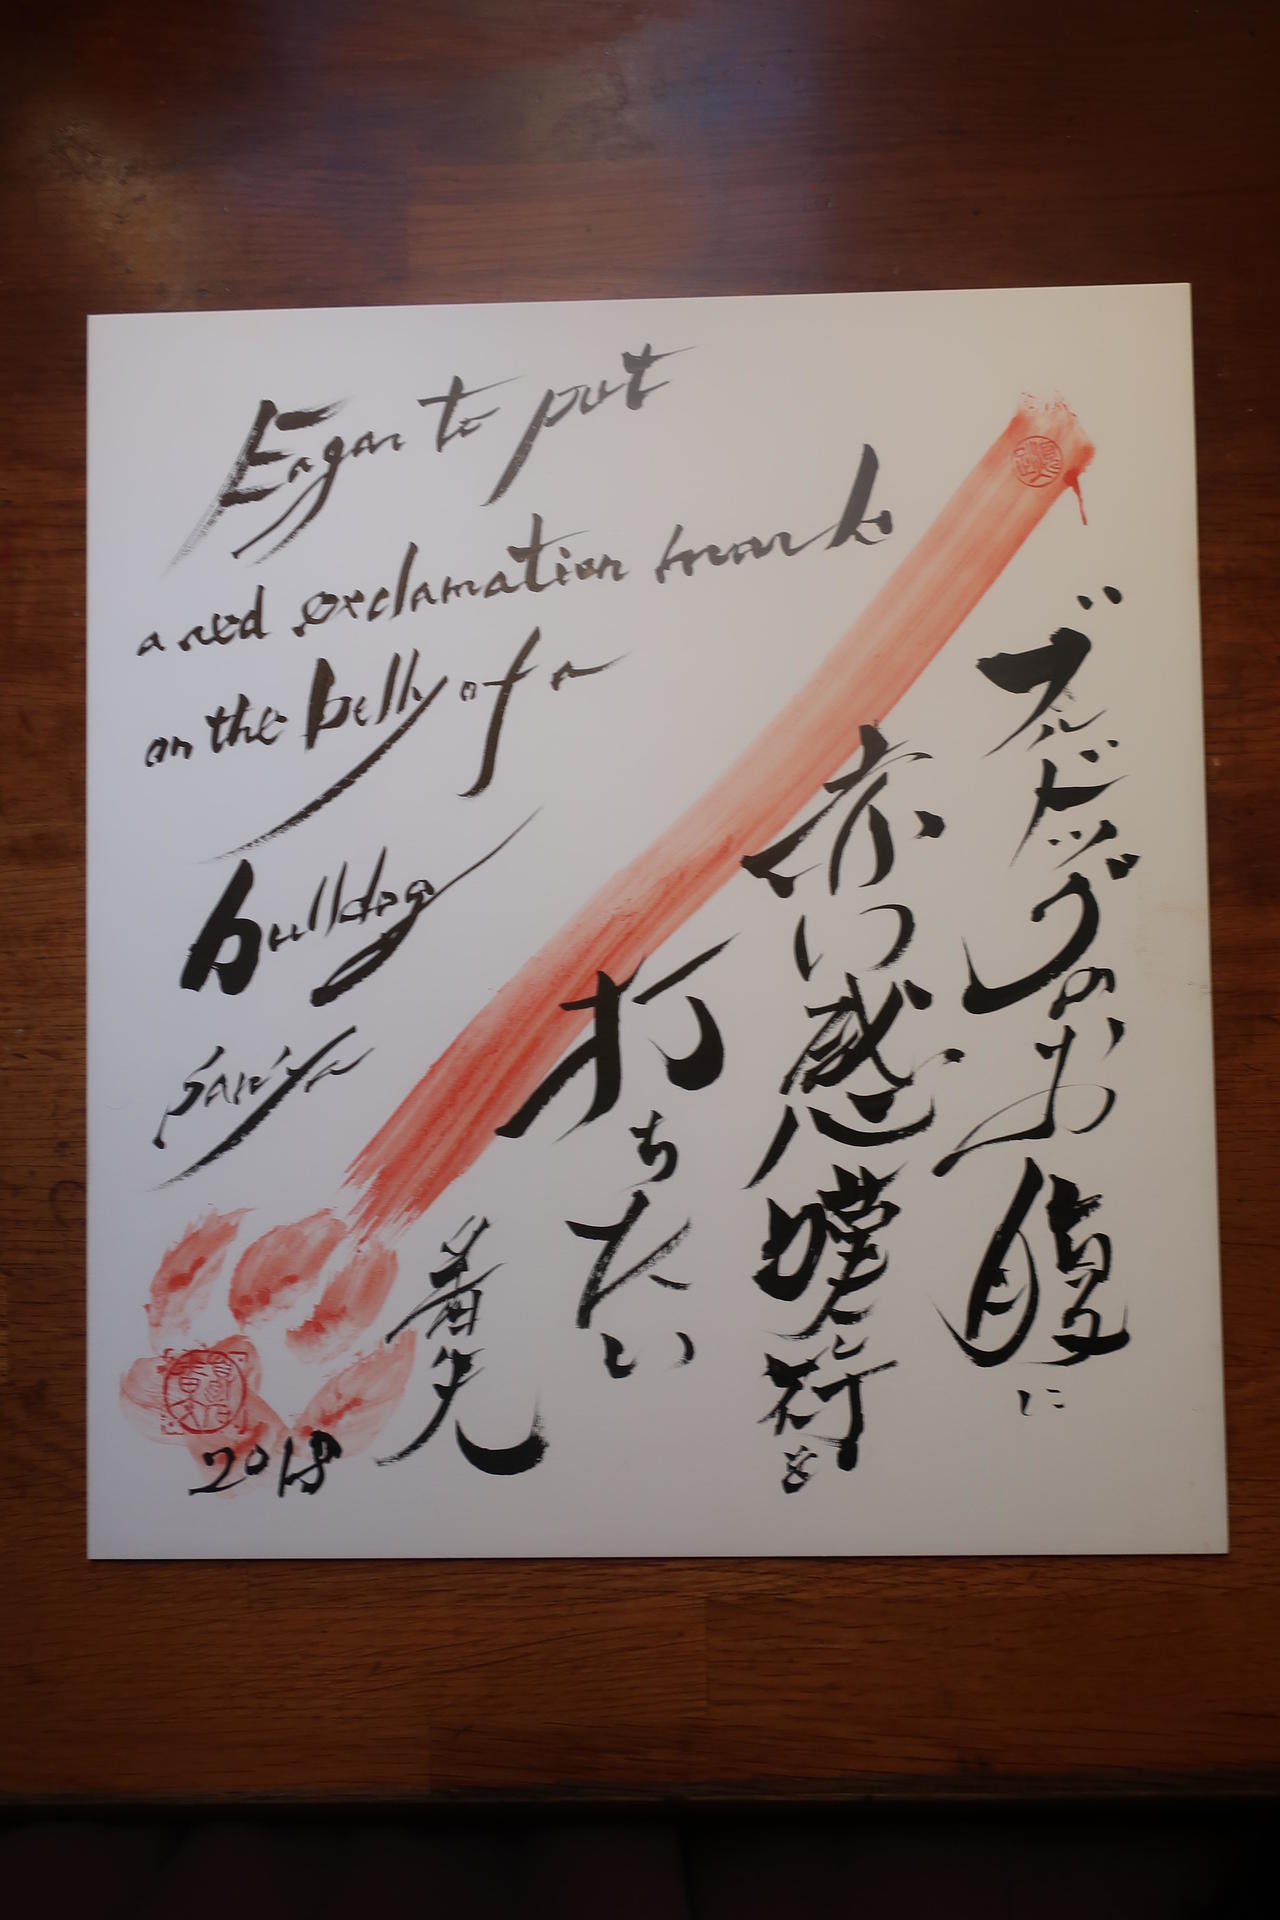 Eagar to put
a red exclamation mark
on the belly of a
bulldog
ban'ya
ブルドッグのお腹に
赤い感嘆符を
打ちたい
2018